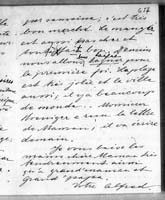 657
par semaine, c'est très
bon marché. Le manger
est
bon. Demain
nous allons
la première fois. La plage
est très jolie et la ville
aussi, il y a beaucoup
de monde. Monsieur
a reçu la lettre
de Maman, il va écrire
demain.
Je vous baise les
mains chère Maman
ainsi
qu'à grand'maman et
Grand'papa
Votre Alfred